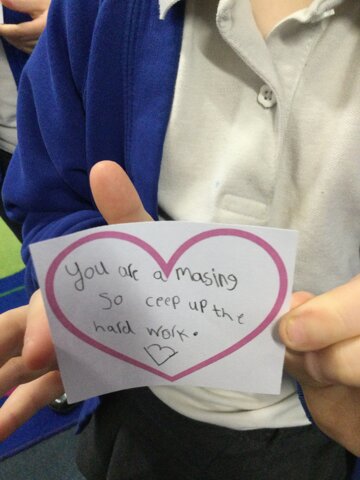 You are a masing
so ceep up the
hard work.